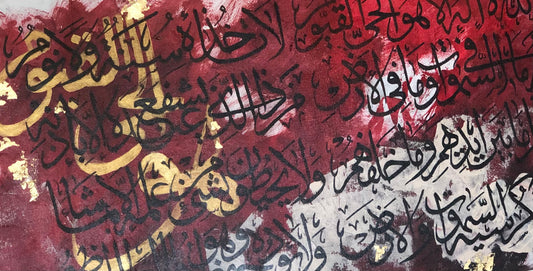 الله لا إله إلا هو الحي القيوم لا تأخذه سنة ولا نوم
ما في السموت وما في الارض من ذا الذي يشفع عنده الا باذنه
ما بين ايديهم وما خلفهم ولا يحيطون بشيء من علمه الا بما شا
كرسيه السموت والارض ولا يؤده وهو
الحي القيوم